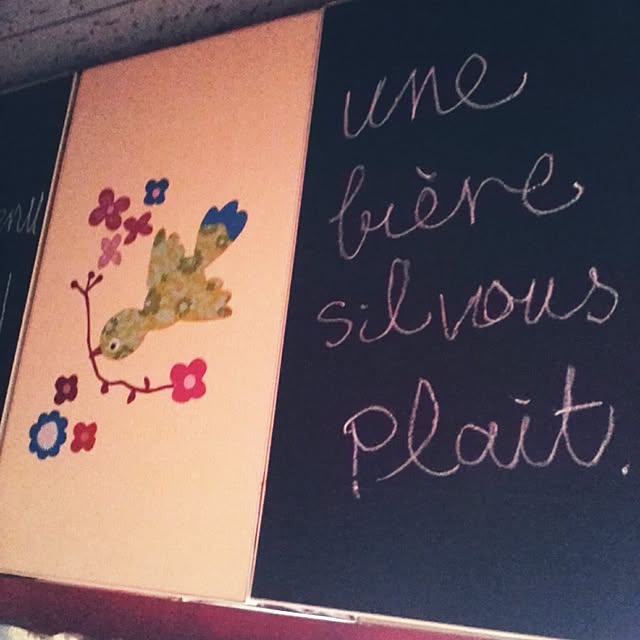 une
bière
sil vous
plaît.